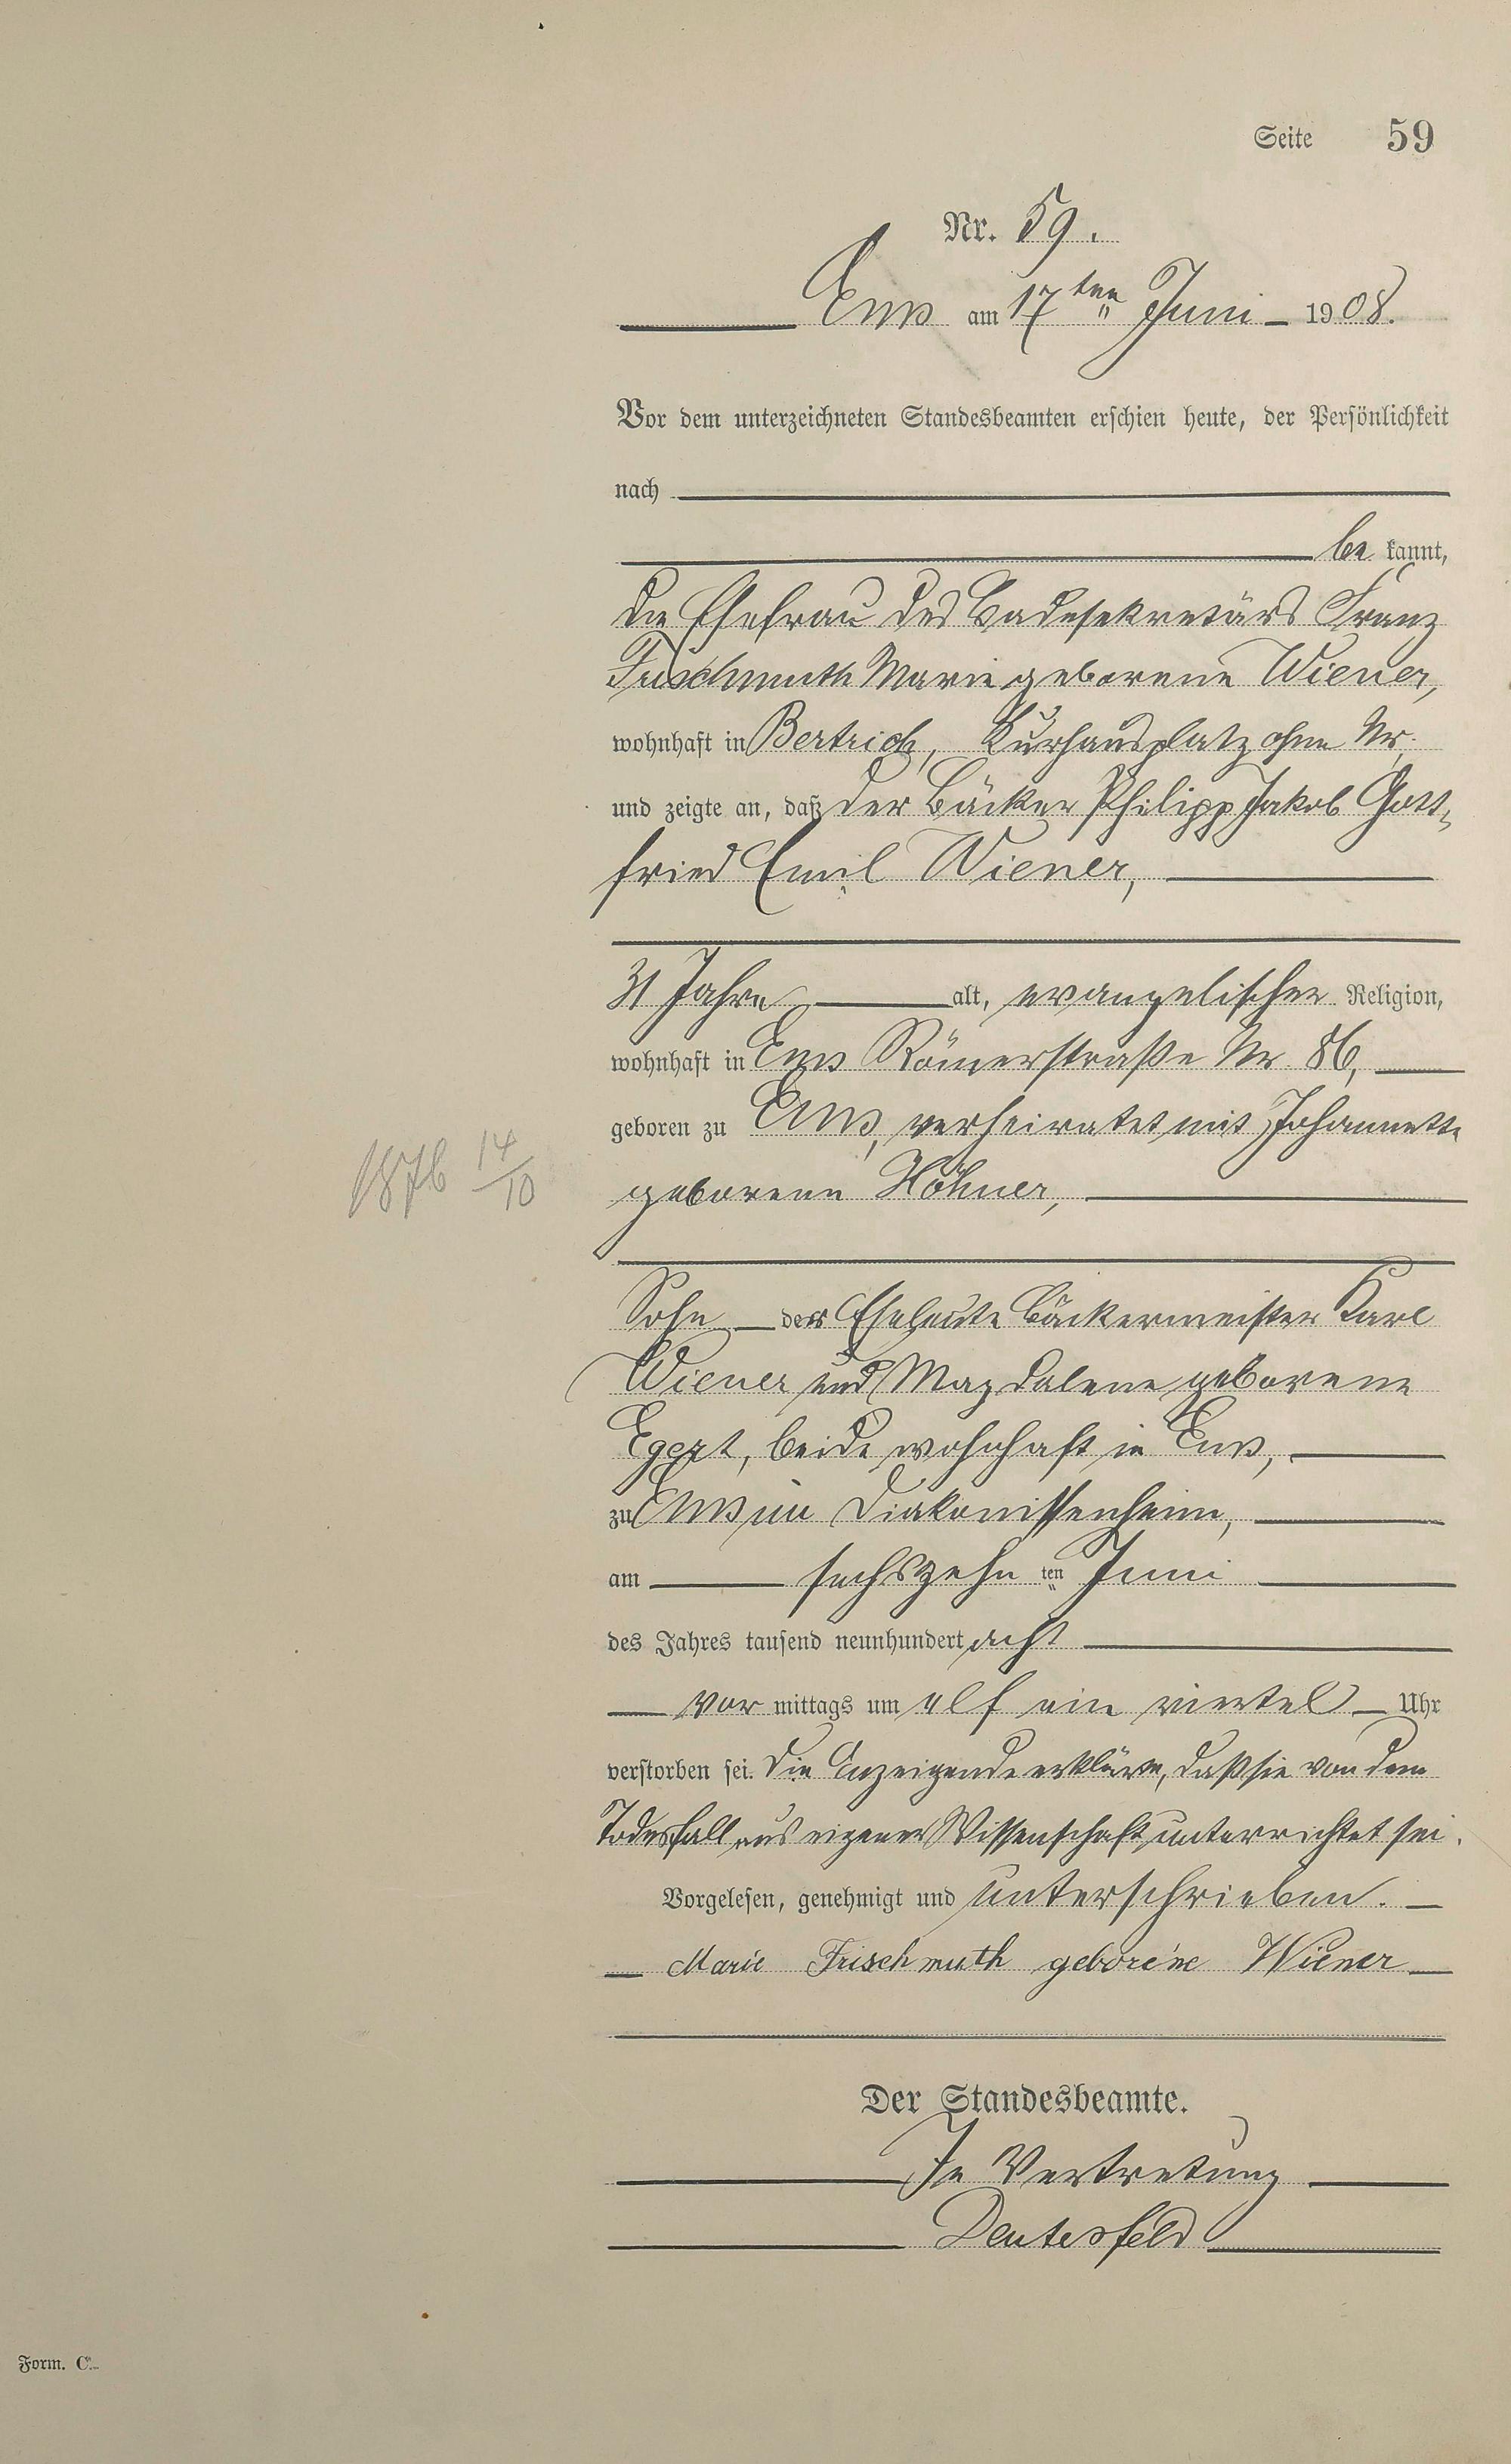 Seite 59
Nr. 59.
Ems am 17ten Juni 1908.
Vor dem unterzeichneten Standesbeamten erschien heute, der Persönlichkeit
nach
be kannt,
die Ehefrau des Badesekretärs Franz
Frischmuth Marie geborene Wiener,
wohnhaft in Bertrich, Kurhausplatz ohne Nr.
und zeigte an, daß der Bäcker Philipp Jakob Gott-
fried Emil Wiener,
31 Jahre alt, evangelischer Religion,
wohnhaft in Ems Römerstraße Nr. 86,
geboren zu Ems, verheiratet mit Johannette
1876 14/10
geborene Höhner,
Sohn der Eheleute Bäckermeister Karl
Wiener und Magdalene geborene
Egert, beide wohnhaft in Ems,
zu Ems im Diakonissenheim,
am sechszehn ten Juni
des Jahres tausend neunhundert acht
vor mittags um elf ein viertel Uhr
verstorben sei. Die Anzeigende erklärte, daß sie von dem
Todesfall aus eigener Wissenschaft unterrichtet sei.
Vorgelesen, genehmigt und unterschrieben.
Marie Frischmuth geborene Wiener
Der Standesbeamte.
In Vertretung
Deutesfeld
Form. C.